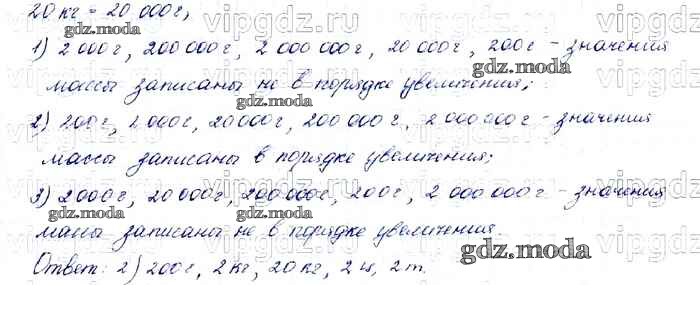 20 кг = 20 000 г;
1) 2 000 г, 200 000 г, 2 000 000 г, 20 000 г, 200 г - значения
массы записаны не в порядке увеличения;
2) 200 г, 2 000 г, 20 000 г, 200 000 г, 2 000 000 г - значения
массы записаны в порядке увеличения;
3) 2 000 г, 20 000 г, 200 000 г, 200 г, 2 000 000 г - значения
массы записаны не в порядке увеличения.
Ответ: 2) 200 г, 2 кг, 20 кг, 2 ц, 2 т.
vipgdz.ru
gdz.moda